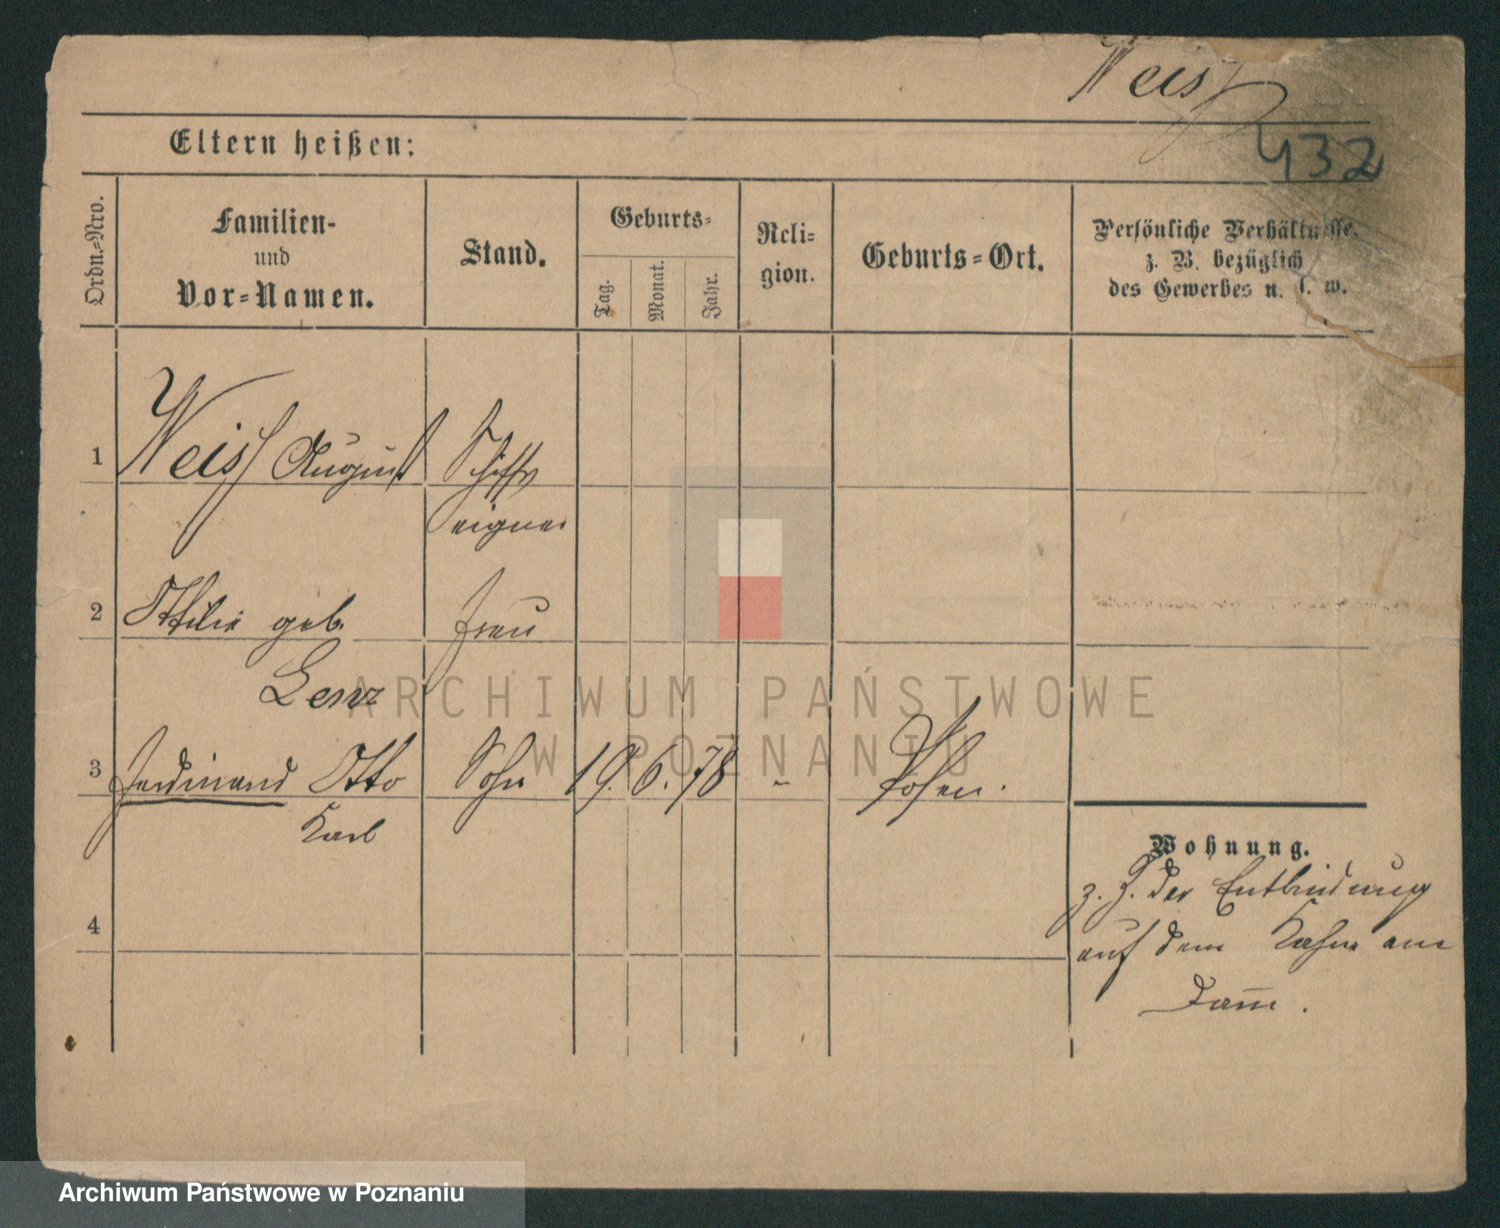 Weiss
432
Eltern heißen:
Ordn.-Nro.
Familien-
und
Vor-Namen.
Stand.
Geburts-
Tag.
Monat.
Jahr.
Reli-
gion.
Geburts-Ort.
Persönliche Verhältnisse
z. B. bezüglich
des Gewerbes u. s. w.
1 Weiss August Schiffs
eigner
2 Ottilie geb. Frau
Lenz
3 Ferdinand Otto Sohn 19. 6. 78 - Posen.
Karl
Wohnung.
z. Z. der Entbindung
auf dem Kahne am
Dam̅.
4
ARCHIWUM PAŃSTWOWE
W POZNANIU
Archiwum Państwowe w Poznaniu